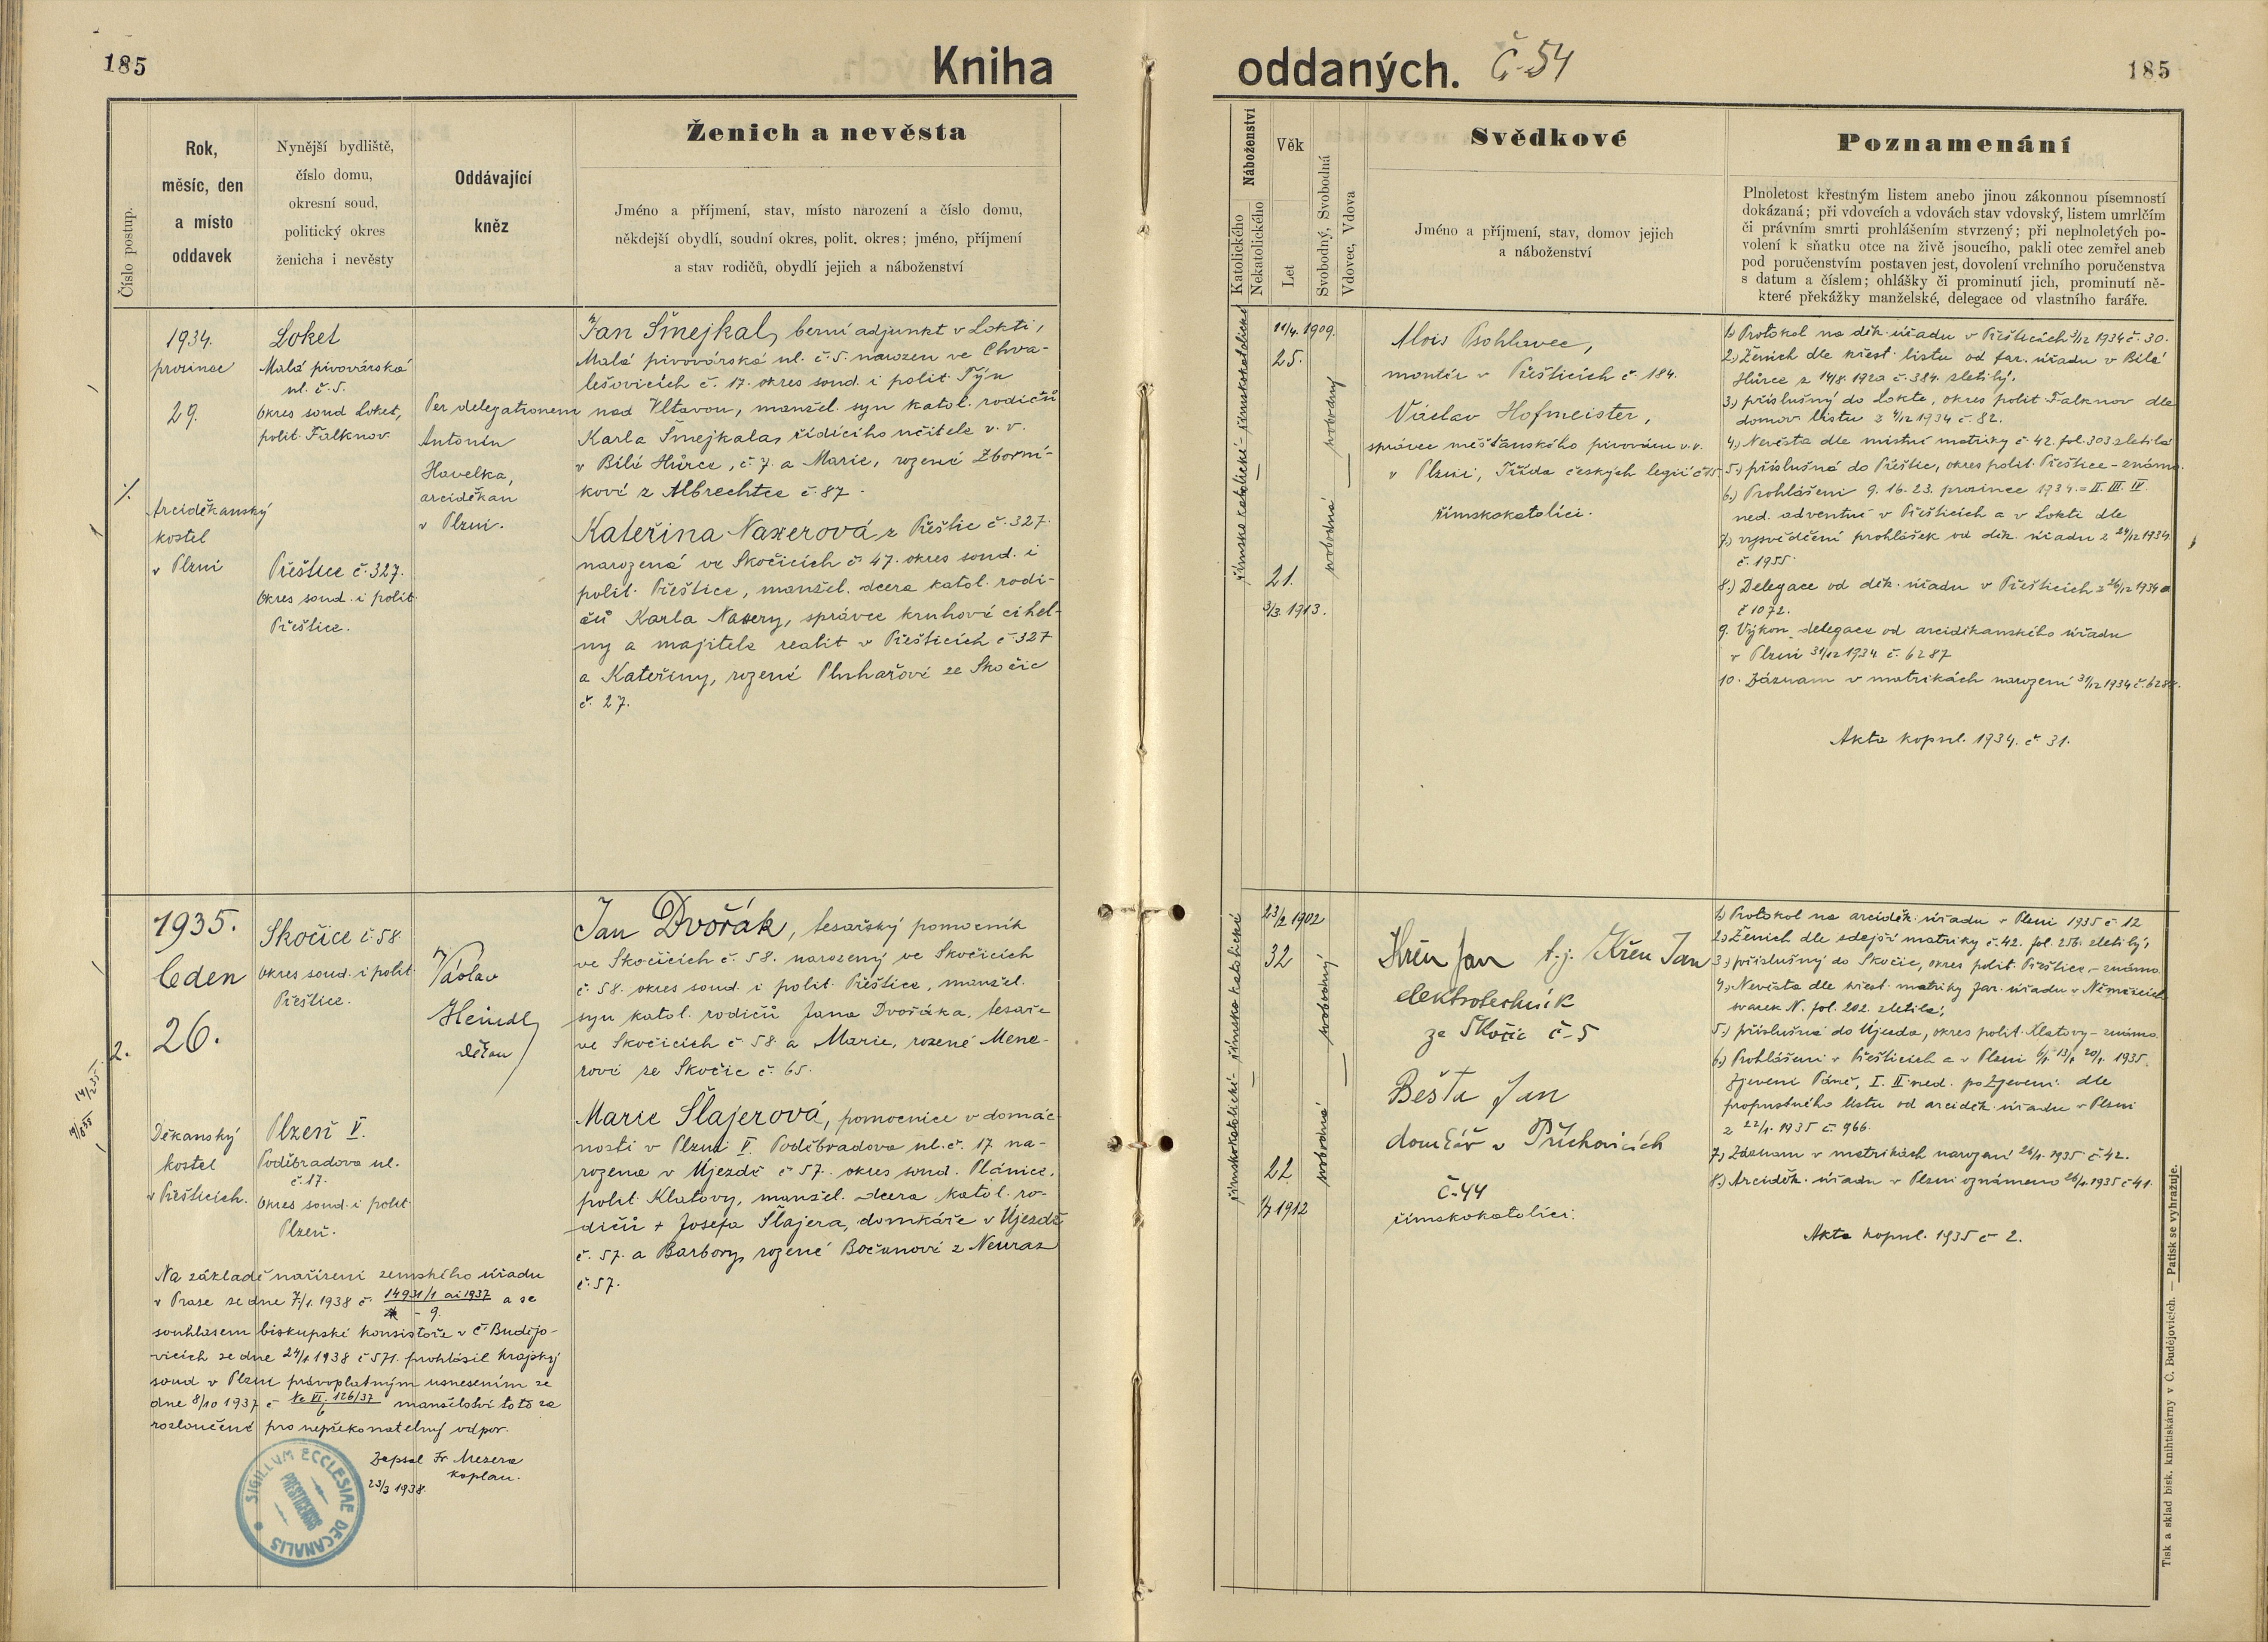 185
Kniha
oddaných. Č 54
185
Číslo postup.
Rok,
měsíc, den
a místo
oddavek
Nynější bydliště,
číslo domu,
okresní soud,
politický okres
ženicha i nevěsty
Oddávající
kněz
Ženich a nevěsta
Jméno a příjmení, stav, místo narození a číslo domu,
někdejší obydlí, soudní okres, polit. okres; jméno, příjmení
a stav rodičů, obydlí jejich a náboženství
Náboženství
Katolického
Nekatolického
Věk
Let
Svobodný, Svobodná
Vdovec, Vdova
Svědkové
Jméno a příjmení, stav, domov jejich
a náboženství
Poznamenání
Plnoletost křestným listem anebo jinou zákonnou písemností
dokázaná; při vdovcích a vdovách stav vdovský, listem umrlčím
či právním smrti prohlášením stvrzený; při neplnoletých po-
volení k sňatku otce na živě jsoucího, pakli otec zemřel aneb
pod poručenstvím postaven jest, dovolení vrchního poručenstva
s datum a číslem; ohlášky či prominutí jich, prominutí ně-
které překážky manželské, delegace od vlastního faráře.
1934.
prosince
29.
Arciděkanský
kostel
v Plzni
Loket
Malá pivovárská
ul. č. 5.
Okres soud Loket,
polit. Falknov
Přeštice č. 327.
Okres soud. i polit.
Přeštice.
Per delegationem
Antonín
Havelka,
arciděkan
v Plzni.
Jan Šmejkal, berní adjunkt v Lokti,
Malá pivovárská ul. č. 5. narozen ve Chva-
lešovicích č. 17. okres soud. i polit. Týn
nad Vltavou, manžel. syn katol. rodičů
Karla Šmejkala, řídícího učitele v. v.
v Bílé Hůrce, č. 7. a Marie, rozené Zborní-
kové z Albrechtce č. 87.
Kateřina Naxerová z Přeštic č. 327.
narozená ve Skočicích č. 47. okres soud. i
polit. Přeštice, manžel. dcera katol. rodi-
čů Karla Naxery, správce kruhové cihel-
ny a majitele realit v Přešticích č 327
a Kateřiny, rozené Pluhařové ze Skočic
č. 27.
římskokatolické - římskokatolické
11/4. 1909.
25.
21.
3/3. 1913.
svobodná svobodný
Alois Psohlavec,
montér v Přešticích č. 184.
Václav Hofmeister,
správce měšťanského pivováru v.v.
v Plzni, Třída českých legií č 15.
římskokatolíci.
1) Protokol na děk. úřadu v Přešticích 3/12 1934 č. 30.
2.) Ženich dle křest. listu od far. úřadu v Bílé
Hůrce z 14/8. 1920 č. 384. zletilý.
3.) příslušný do Lokte, okres polit. Falknov dle
domov. listu z 4/12 1934 č. 82.
4.) Nevěsta dle místní matriky č. 42. fol. 303 zletilá
5.) příslušná do Přeštic, okres polit. Přeštice - známo.
6.) Prohlášeni 9. 16. 23. prosince 1934. = II. III. IV.
ned. adventní v Přešticích a v Lokti dle
7.) vysvědčení prohlášek od děk. úřadu z 24/12 1934
č. 1955.
8.) Delegace od děk. úřadu v Přešticích z 26/12 1934
č 1072.
9. Výkon delegace od arciděkanského úřadu
v Plzni 31/12 1934 č. 6287
10. Záznam v matrikách narození 31/12 1934 č. 6288.
Akta kopul. 1934. č. 31.
2.
1935.
leden
26.
Děkanský
kostel
v Přešticích.
Skočice č. 58
Okres soud. i polit
Přeštice.
Plzeň V.
Poděbradova ul.
č. 17.
Okres soud. i polit.
Plzeň.
Václav
Heindl,
děkan
Jan Dvořák, tesařský pomocník
ve Skočicích č. 58. narozený ve Skočicích
č. 58. okres soud. i polit. Přeštice, manžel.
syn katol. rodičů Jana Dvořáka, tesaře
ve Skočicích č 58. a Marie, rozené Menc-
rové ze Skočic č. 65.
Marie Šlajerová, pomocnice v domác-
nosti v Plzni V. Poděbradova ul. č. 17 na-
rozena v Újezdě č 57. okres soud. Plánice,
polit. Klatovy, manžel. dcera katol. ro-
dičů + Josefa Šlajera, domkáře v Újezdě
č. 57. a Barbory, rozené Bočanové z Neuraz
č. 57.
Na základě nařízení zemského úřadu
v Praze ze dne 7/1. 1938 č. 14931/1 ai 1937 a se
- 9.
souhlasem biskupské konsistoře v Č. Budějo-
vicích ze dne 24/1 1938 č 571. prohlásil krajský
soud v Plzni právoplatným usnesením ze
dne 8/10 1937 č Nc VI. 126/37 manželství toto za
6
rozloučené pro nepřekonatelný odpor.
Zapsal Fr. Mezera
kaplan.
23/3 1938.
SIGILLUM ECCLESIAE DECANALIS
PŘEŠTICENSIS
římskokatolické - římskokatolické
23/2 1902
32
22
1/7 1912
svobodná svobodný
Křen Jan t.j. Křen Jan
elektrotechnik
ze Skočic č-5
Bešta Jan
domkář v Příchovicích
č. 44
římskokatolíci.
1) Protokol na arciděk. úřadu v Plzni 1935 č 12
2.) Ženich dle zdejší matriky č. 42. fol. 256. zletilý,
3.) příslušný do Skočic, okres polit. Přeštice, - známo.
4.) Nevěsta dle křest. matriky far. úřadu v Němčicích
svazek N. fol. 202. zletilá;
5.) příslušná do Újezda, okres polit. Klatovy - známo.
6.) Prohlášeni v Přešticích a v Plzni 6/1. 13/1. 20/1. 1935.
Zjevení Páně, I. II ned. po Zjevení. dle
propustného listu od arciděk. úřadu v Plzni
z 22/1. 1935 č. 966.
7.) Záznam v matrikách narození 26/1. 1935 č 42.
8.) Arciděk. úřadu v Plzni oznámeno 26/1. 1935 č 41.
Akta kopul. 1935 č 2.
Tisk a sklad bisk. knihtiskárny v Č. Budějovicích. — Patisk se vyhražuje.